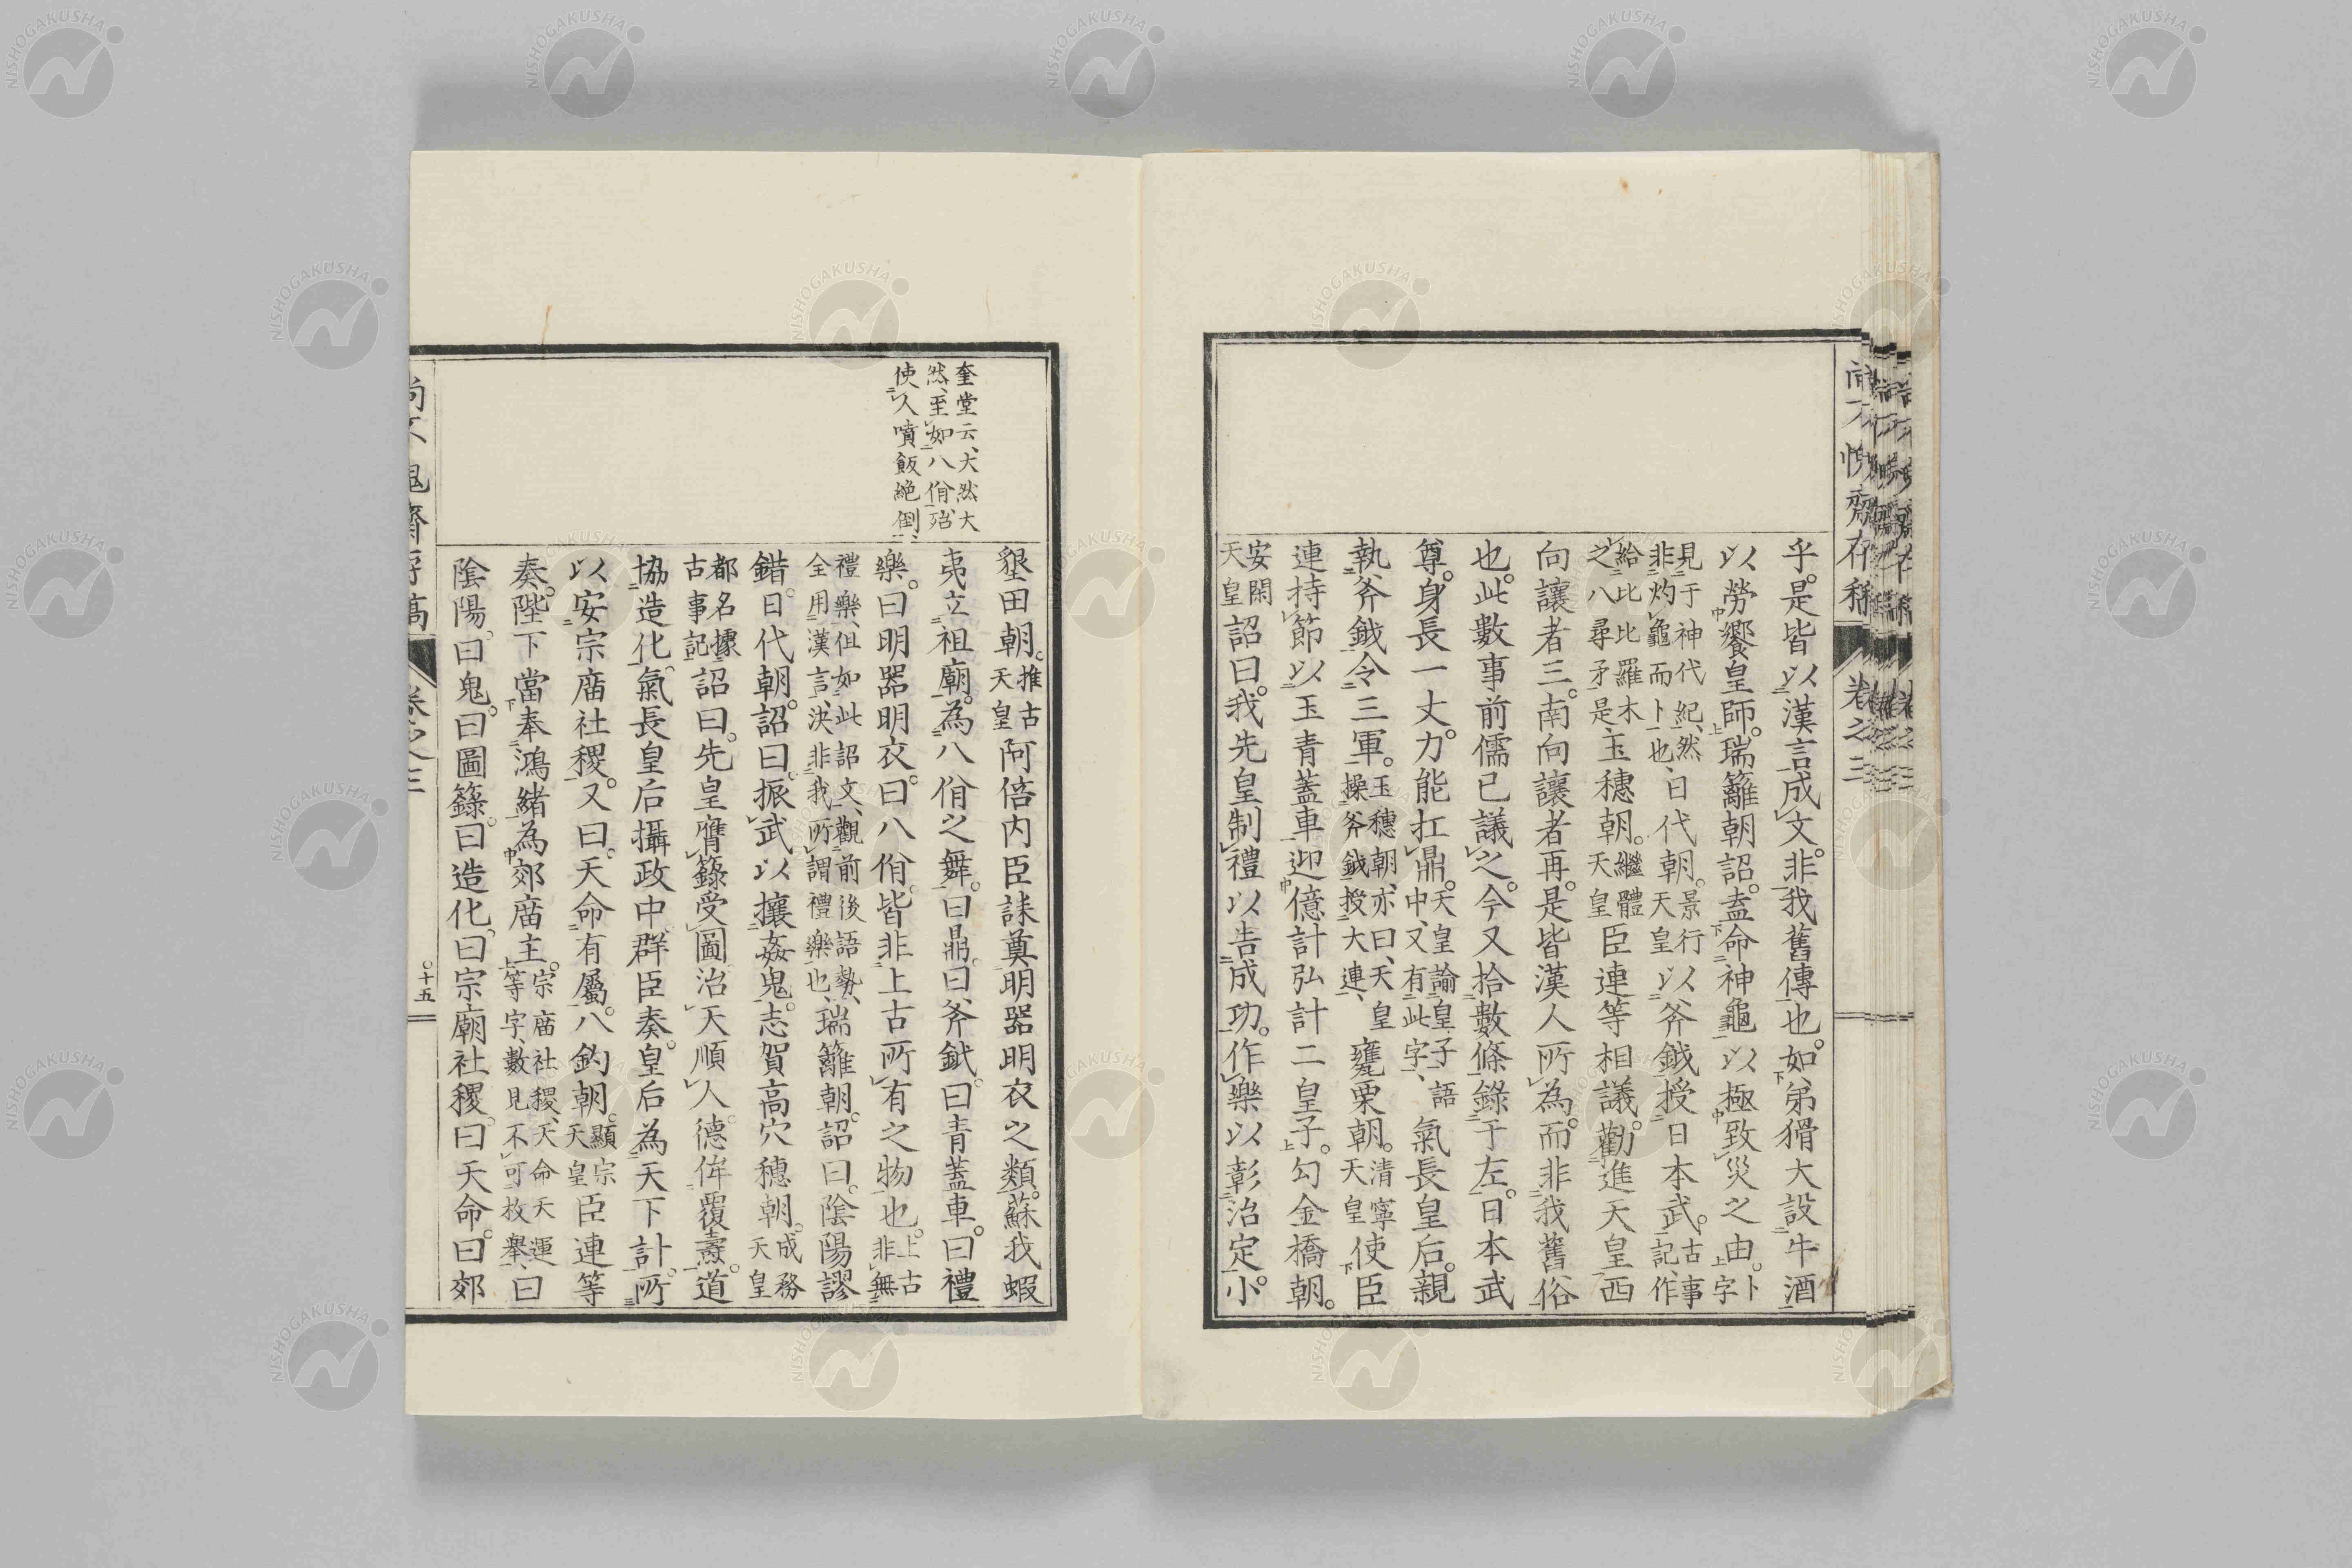 尚不愧齋存稿 卷之三
乎。是皆以漢言成文。非我舊傳也。如弟猾大設牛酒
以勞饗皇師。瑞籬朝詔。盍命神龜以極致災之由。卜字
見于神代紀、然非灼龜而卜也、日代朝。景行天皇以斧鉞授日本武。古事記、作
給比比羅木之八尋矛是玉穗朝。繼體天皇臣連等相議。勸進天皇西
向讓者三。南向讓者再。是皆漢人所為。而非我舊俗
也。此數事前儒已議之。今又拾數條錄于左。日本武
尊。身長一丈。力能扛鼎。天皇諭皇子語中、又有此字、氣長皇后。親
執斧鉞令三軍。玉穗朝、亦曰、天皇操斧鉞授大連、甕栗朝。清寧天皇使臣
連持節以王青蓋車迎億計弘計二皇子。勾金橋朝。
安閑天皇詔曰。我先皇制禮以告成功。作樂以彰治定。小
墾田朝。推古天皇阿倍内臣誄奠明器明衣之類。蘇我蝦
夷立祖廟。為八佾之舞。曰鼎。曰斧鉞。曰青蓋車。曰禮
樂。曰明器明衣。曰八佾。皆非上古所有之物也。上古非無
禮樂、但如此詔文、觀前後語勢、全用漢言、決非我所謂禮樂也、瑞籬朝。詔曰。陰陽謬
錯。日代朝。詔曰。振武以攘姦鬼。志賀高穴穗朝。成務天皇
都名據古事記詔曰。先皇膺籙受圖治天順人德侔覆燾。道
協造化。氣長皇后攝政中。群臣奏。皇后為天下計。所
以安宗庿社稷。又曰。天命有屬。八釣朝。顯宗天皇臣連等
奏。陛下當奉鴻緒為郊庿主。宗庿社稷、天命天運等字、數見不可枚舉、曰
陰陽。曰鬼。曰圖籙。曰造化。曰宗廟社稷。曰天命。曰郊
奎堂云、大然大
然、至如八佾、殆
使人噴飯絶倒、
尚不愧齋存稿 卷之三 十五